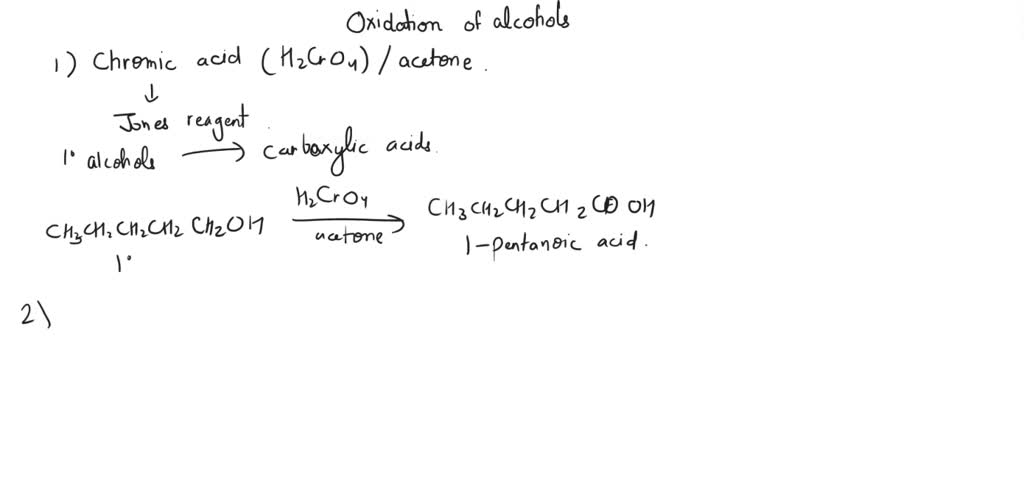 Oxidation of alcohols
1) Chromic acid (H2CrO4) / acetone.
↓
Jones reagent
1° alcohols → carboxylic acids.
CH3CH2CH2CH2CH2OH H2CrO4 → acetone CH3CH2CH2CH2COOH
1° 1-pentanoic acid.
2)